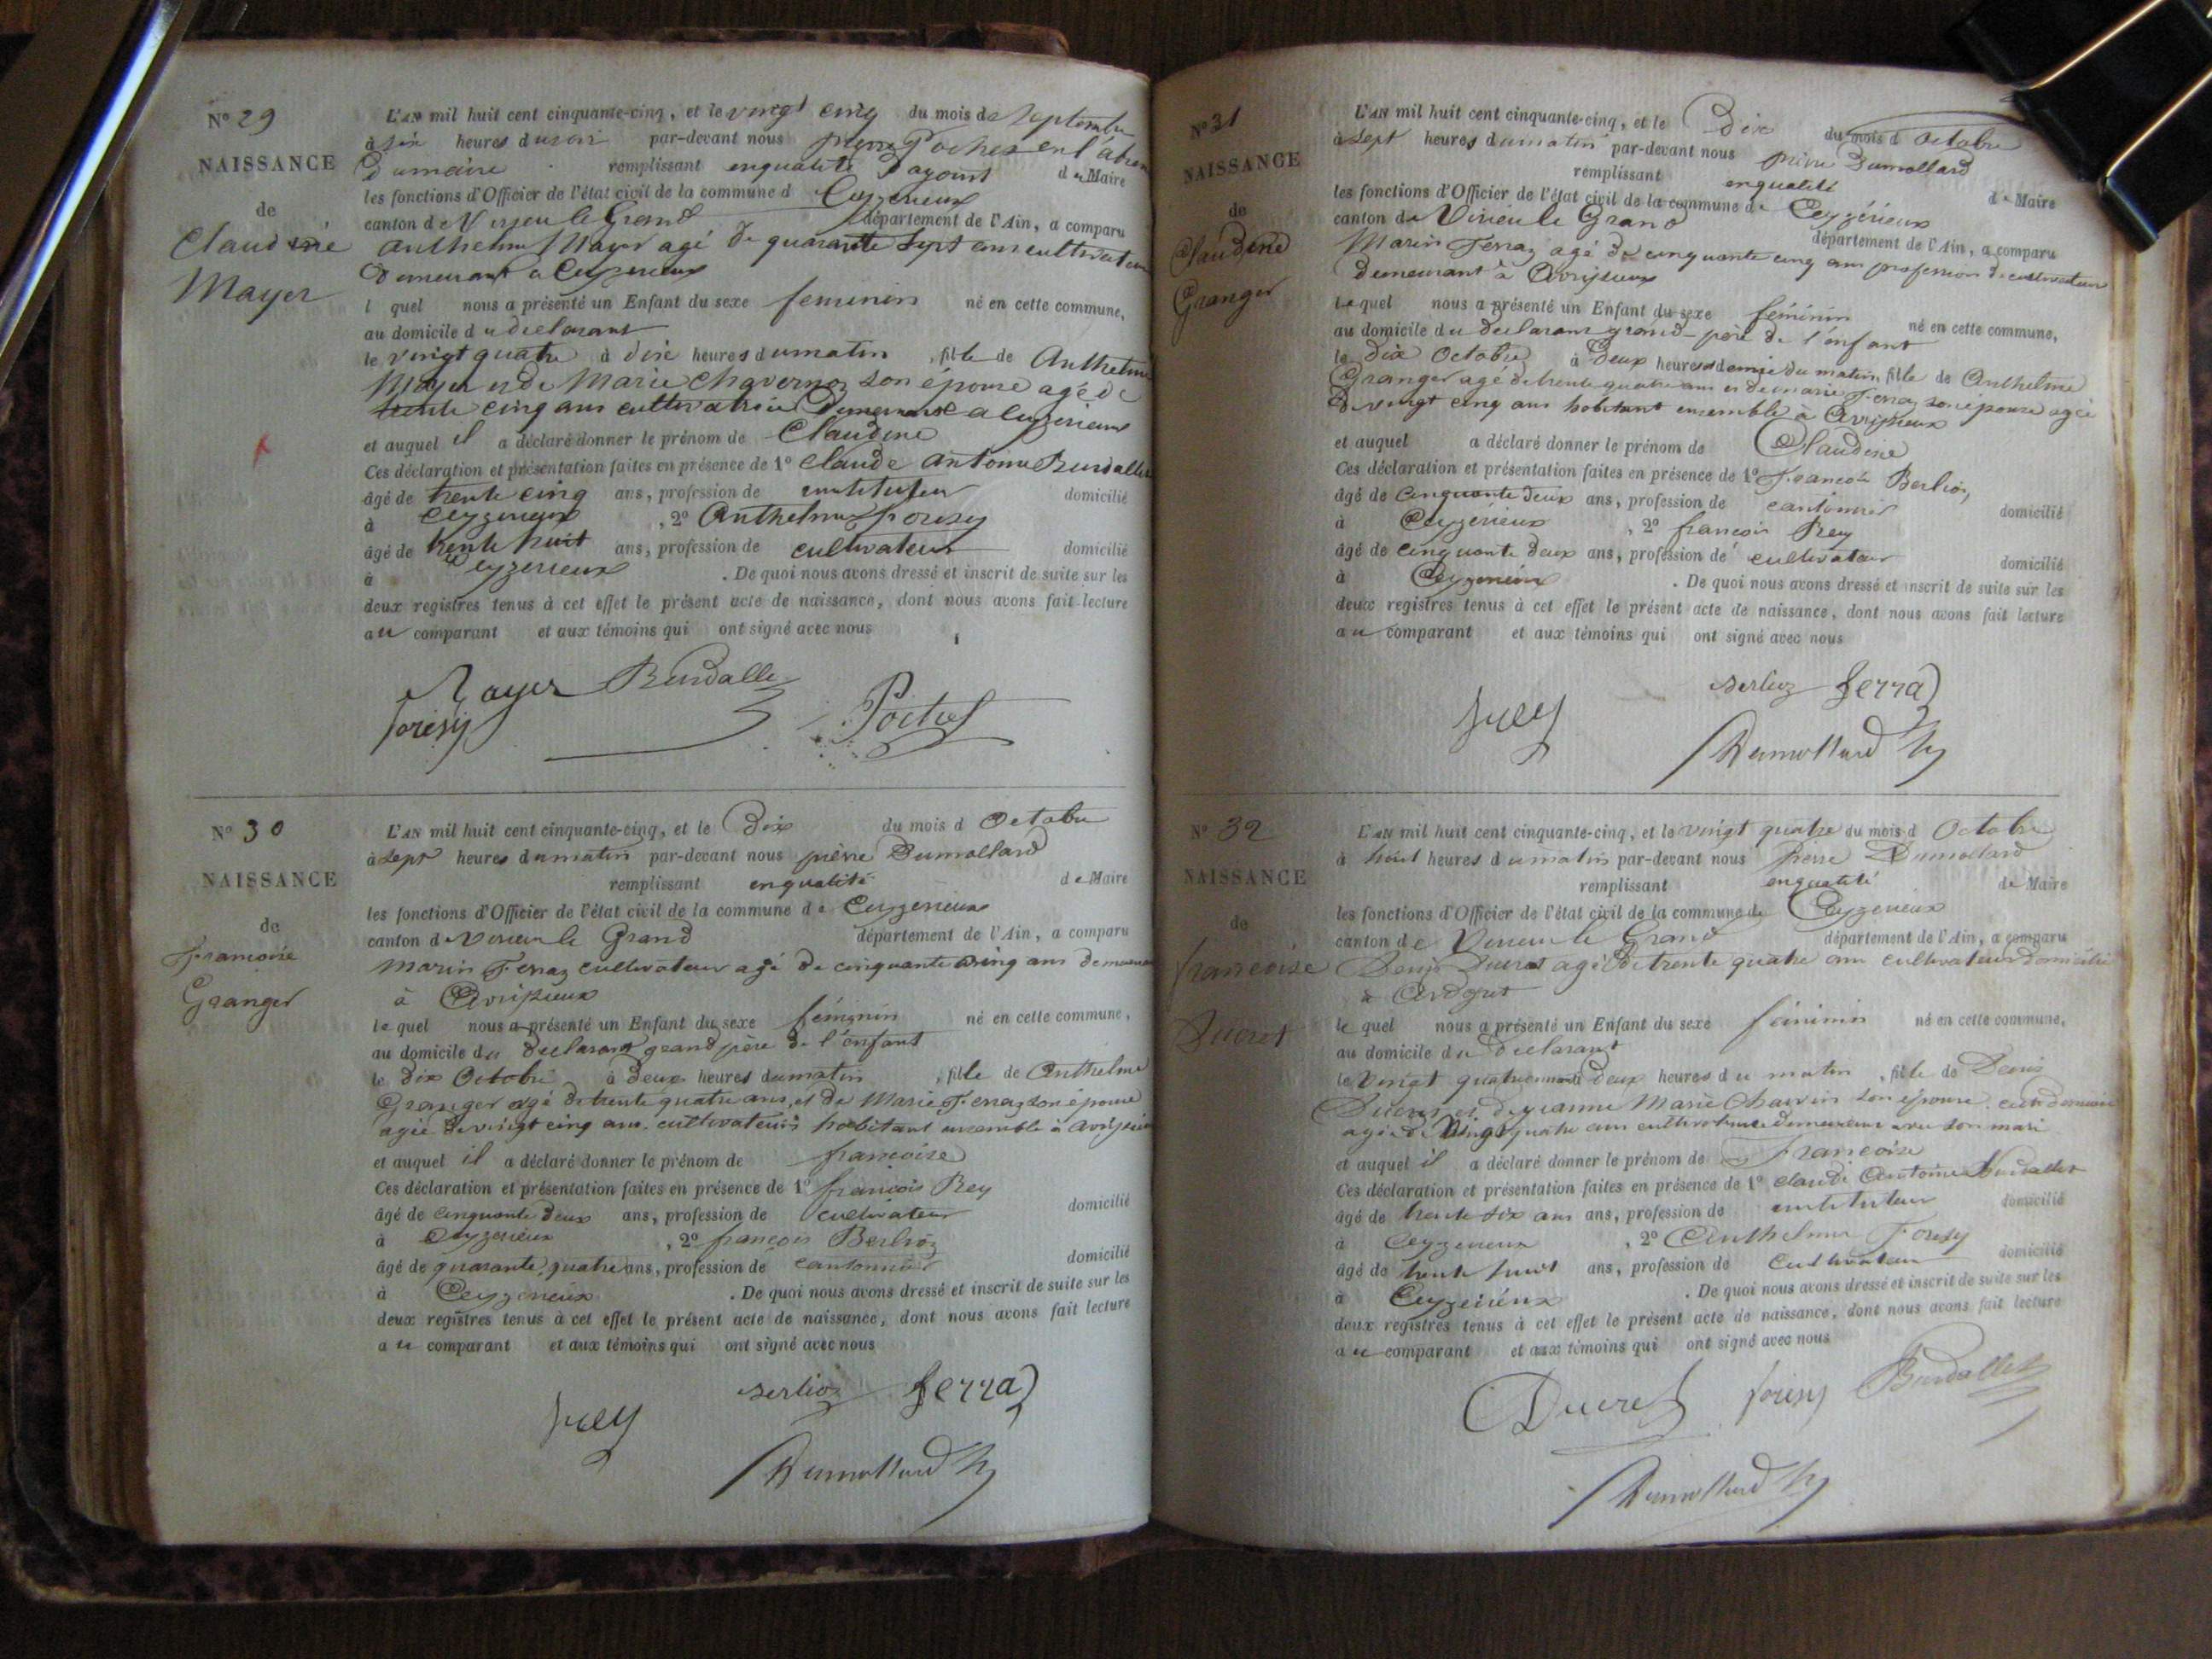 N° 29
NAISSANCE
de
Claudine
Mayer
L'AN mil huit cent cinquante-cinq, et le vingt cinq du mois de Septembre
à six heures du soir par-devant nous pierre Pochet en l'absen
Du maire remplissant en qualité D'agoint de Maire
les fonctions d'Officier de l'état civil de la commune d Ceyzerieux
canton de Virieu le Grand département de l'Ain, a comparu
anthelme Mayer agé de quarante sept ans cultivateur
Demeurant a Ceyzerieux
l quel nous a présenté un Enfant du sexe feminin né en cette commune,
au domicile du declarant
le vingt quatre à dix heures du matin, fille de Anthelme
Mayer et de Marie Chavernoz son épouse agé de
trente cinq ans cultivatrice Demeurant a Ceyzerieux
et auquel il a déclaré donner le prénom de Claudine
Ces déclaration et présentation faites en présence de 1° Claude Antoine Burdallet
âgé de trente cinq ans, profession de instituteur domicilié
à Ceyzerieux, 2° Anthelme forisy
âgé de trente huit ans, profession de cultivateur domicilié
à Ceyzerieux. De quoi nous avons dressé et inscrit de suite sur les
deux registres tenus à cet effet le présent acte de naissance, dont nous avons fait lecture
au comparant et aux témoins qui ont signé avec nous
Mayer Burdallet
forisy Pochet
N° 30
NAISSANCE
de
Francoise
Granger
L'AN mil huit cent cinquante-cinq, et le Dix du mois d Octobre
à sept heures du matin par-devant nous pierre Dumollard
remplissant en qualité de Maire
les fonctions d'Officier de l'état civil de la commune de Ceyzerieux
canton de Virieu le Grand département de l'Ain, a comparu
Marin Ferraz cultivateur agé de cinquante cinq ans demeurant
à Avrissieux
le quel nous a présenté un Enfant du sexe féminin né en cette commune,
au domicile du declarant grand père de l'enfant
le dix Octobre à deux heures du matin, fille de Anthelme
Granger agé de trente quatre ans, et de Marie Ferraz son épouse
agée de vingt cinq ans, cultivateurs habitant ensemble à avrissieux
et auquel il a déclaré donner le prénom de francoise
Ces déclaration et présentation faites en présence de 1° françois Rey
âgé de cinquante deux ans, profession de cultivateur domicilié
à Ceyzerieux, 2° françois Berlioz
âgé de quarante quatre ans, profession de cantonnier domicilié
à Ceyzerieux. De quoi nous avons dressé et inscrit de suite sur les
deux registres tenus à cet effet le présent acte de naissance, dont nous avons fait lecture
au comparant et aux témoins qui ont signé avec nous
Berlioz ferraz
Rey
Dumollard
N° 31
NAISSANCE
de
Claudine
Granger
L'AN mil huit cent cinquante-cinq, et le Dix du mois d Octobre
à sept heures du matin par-devant nous pierre Dumollard
remplissant en qualité de Maire
les fonctions d'Officier de l'état civil de la commune de Ceyzérieux
canton de Virieu le Grand département de l'Ain, a comparu
Marin Ferraz agé de cinquante cinq ans profession de cultivateur
Demeurant à Avrissieux
le quel nous a présenté un Enfant du sexe féminin né en cette commune,
au domicile du declarant grand-père de l'enfant
le dix Octobre à Deux heures et demie du matin, fille de Anthelme
Granger agé de trente quatre ans et de marie Ferraz son épouse agée
de vingt cinq ans habitant ensemble à Avrissieux
et auquel a déclaré donner le prénom de Claudine
Ces déclaration et présentation faites en présence de 1° François Berlioz
âgé de cinquante deux ans, profession de cantonnier domicilié
à Ceyzérieux, 2° françois Rey
âgé de cinquante deux ans, profession de cultivateur domicilié
à Ceyzerieux. De quoi nous avons dressé et inscrit de suite sur les
deux registres tenus à cet effet le présent acte de naissance, dont nous avons fait lecture
au comparant et aux témoins qui ont signé avec nous
Berlioz ferraz
Rey
Dumollard
N° 32
NAISSANCE
de
francoise
Ducret
L'AN mil huit cent cinquante-cinq, et le vingt quatre du mois d Octobre
à huit heures du matin par-devant nous Pierre Dumollard
remplissant en qualité de Maire
les fonctions d'Officier de l'état civil de la commune de Ceyzerieux
canton de Virieu le Grand département de l'Ain, a comparu
Denis Ducret agé de trente quatre ans cultivateur domicilié
à Ardosset
le quel nous a présenté un Enfant du sexe féminin né en cette commune,
au domicile du declarant
le vingt quatre deux heures du matin, fille de Denis
Ducret et de jeanne Marie Charvin son épouse
agée de vingt quatre ans cultivatrice demeurant avec son mari
et auquel il a déclaré donner le prénom de Francoise
Ces déclaration et présentation faites en présence de 1° claude Antoine Burdallet
âgé de trente six ans ans, profession de instituteur domicilié
à Ceyzerieux, 2° Anthelme Forisy
âgé de trente huit ans, profession de Cultivateur domicilié
à Ceyzerieux. De quoi nous avons dressé et inscrit de suite sur les
deux registres tenus à cet effet le présent acte de naissance, dont nous avons fait lecture
au comparant et aux témoins qui ont signé avec nous
Ducret forisy Burdallet
Dumollard